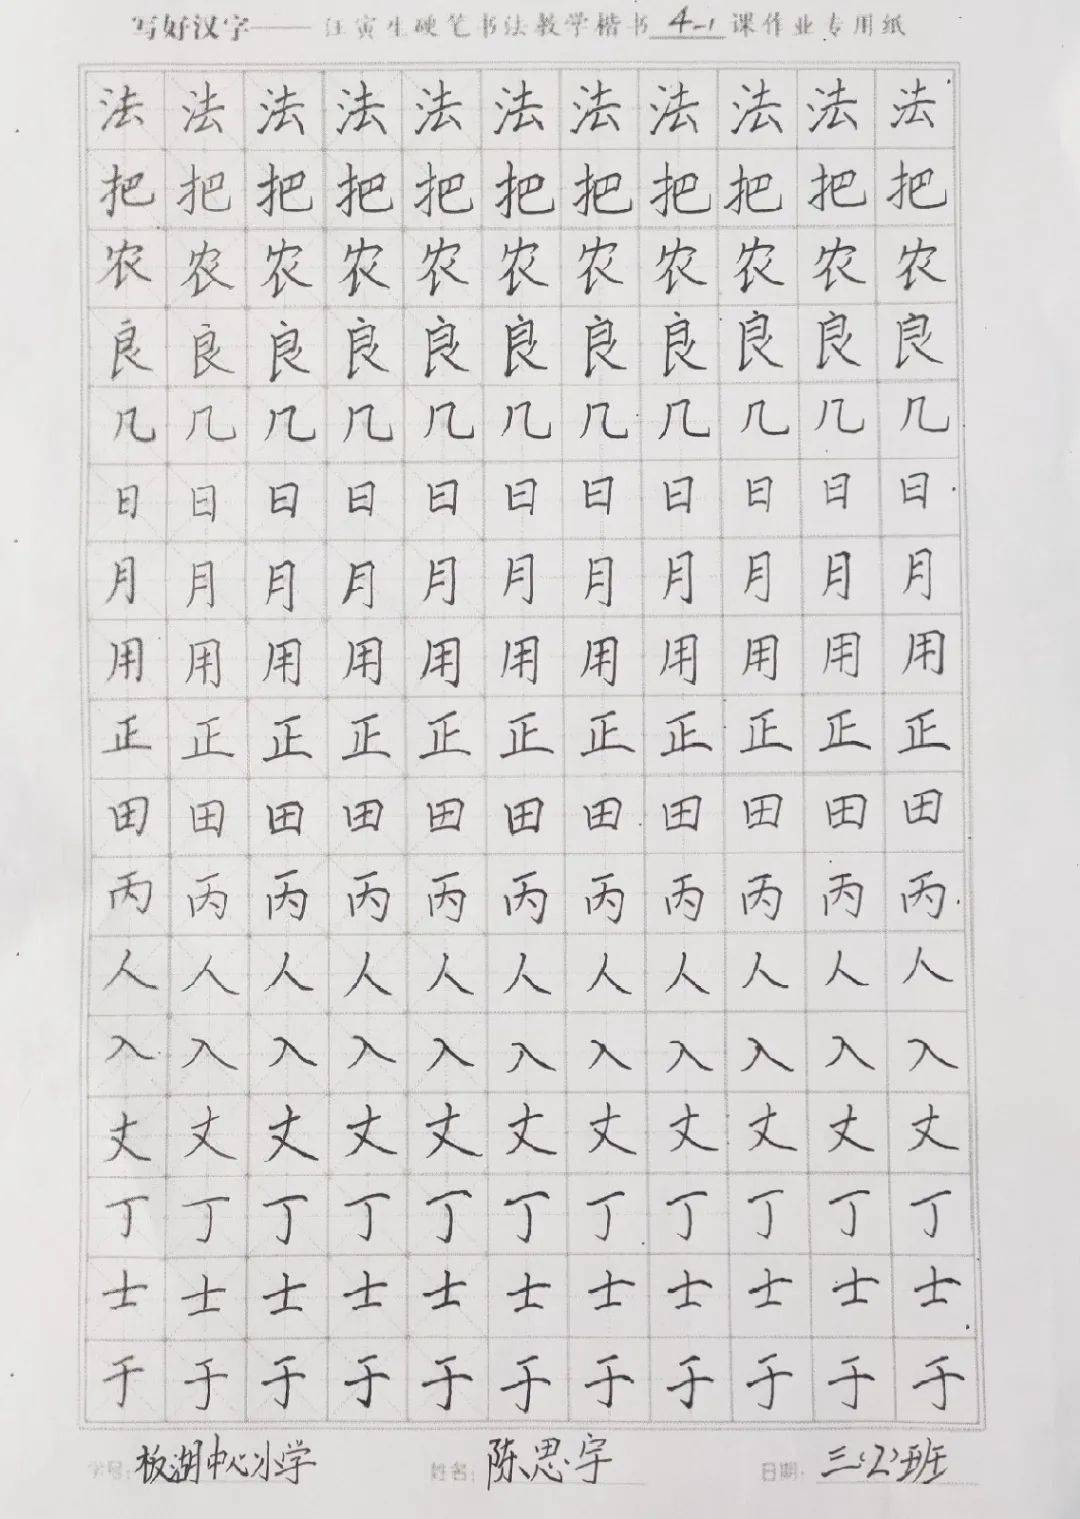 写好汉字——江寅生硬笔书法教学楷书4-1课作业专用纸
法法法法法法法法法法法
把把把把把把把把把把把
农农农农农农农农农农农
良良良良良良良良良良良
几几几几几几几几几几几
日日日日日日日日日日日
月月月月月月月月月月月
用用用用用用用用用用用
正正正正正正正正正正正
田田田田田田田田田田田
丙丙丙丙丙丙丙丙丙丙丙
人人人人人人人人人人人
入入入入入入入入入入入
丈丈丈丈丈丈丈丈丈丈丈
丁丁丁丁丁丁丁丁丁丁丁
士士士士士士士士士士士
于于于于于于于于于于于
学号：板湖中心小学 姓名：陈思宇 日期：三（2）班